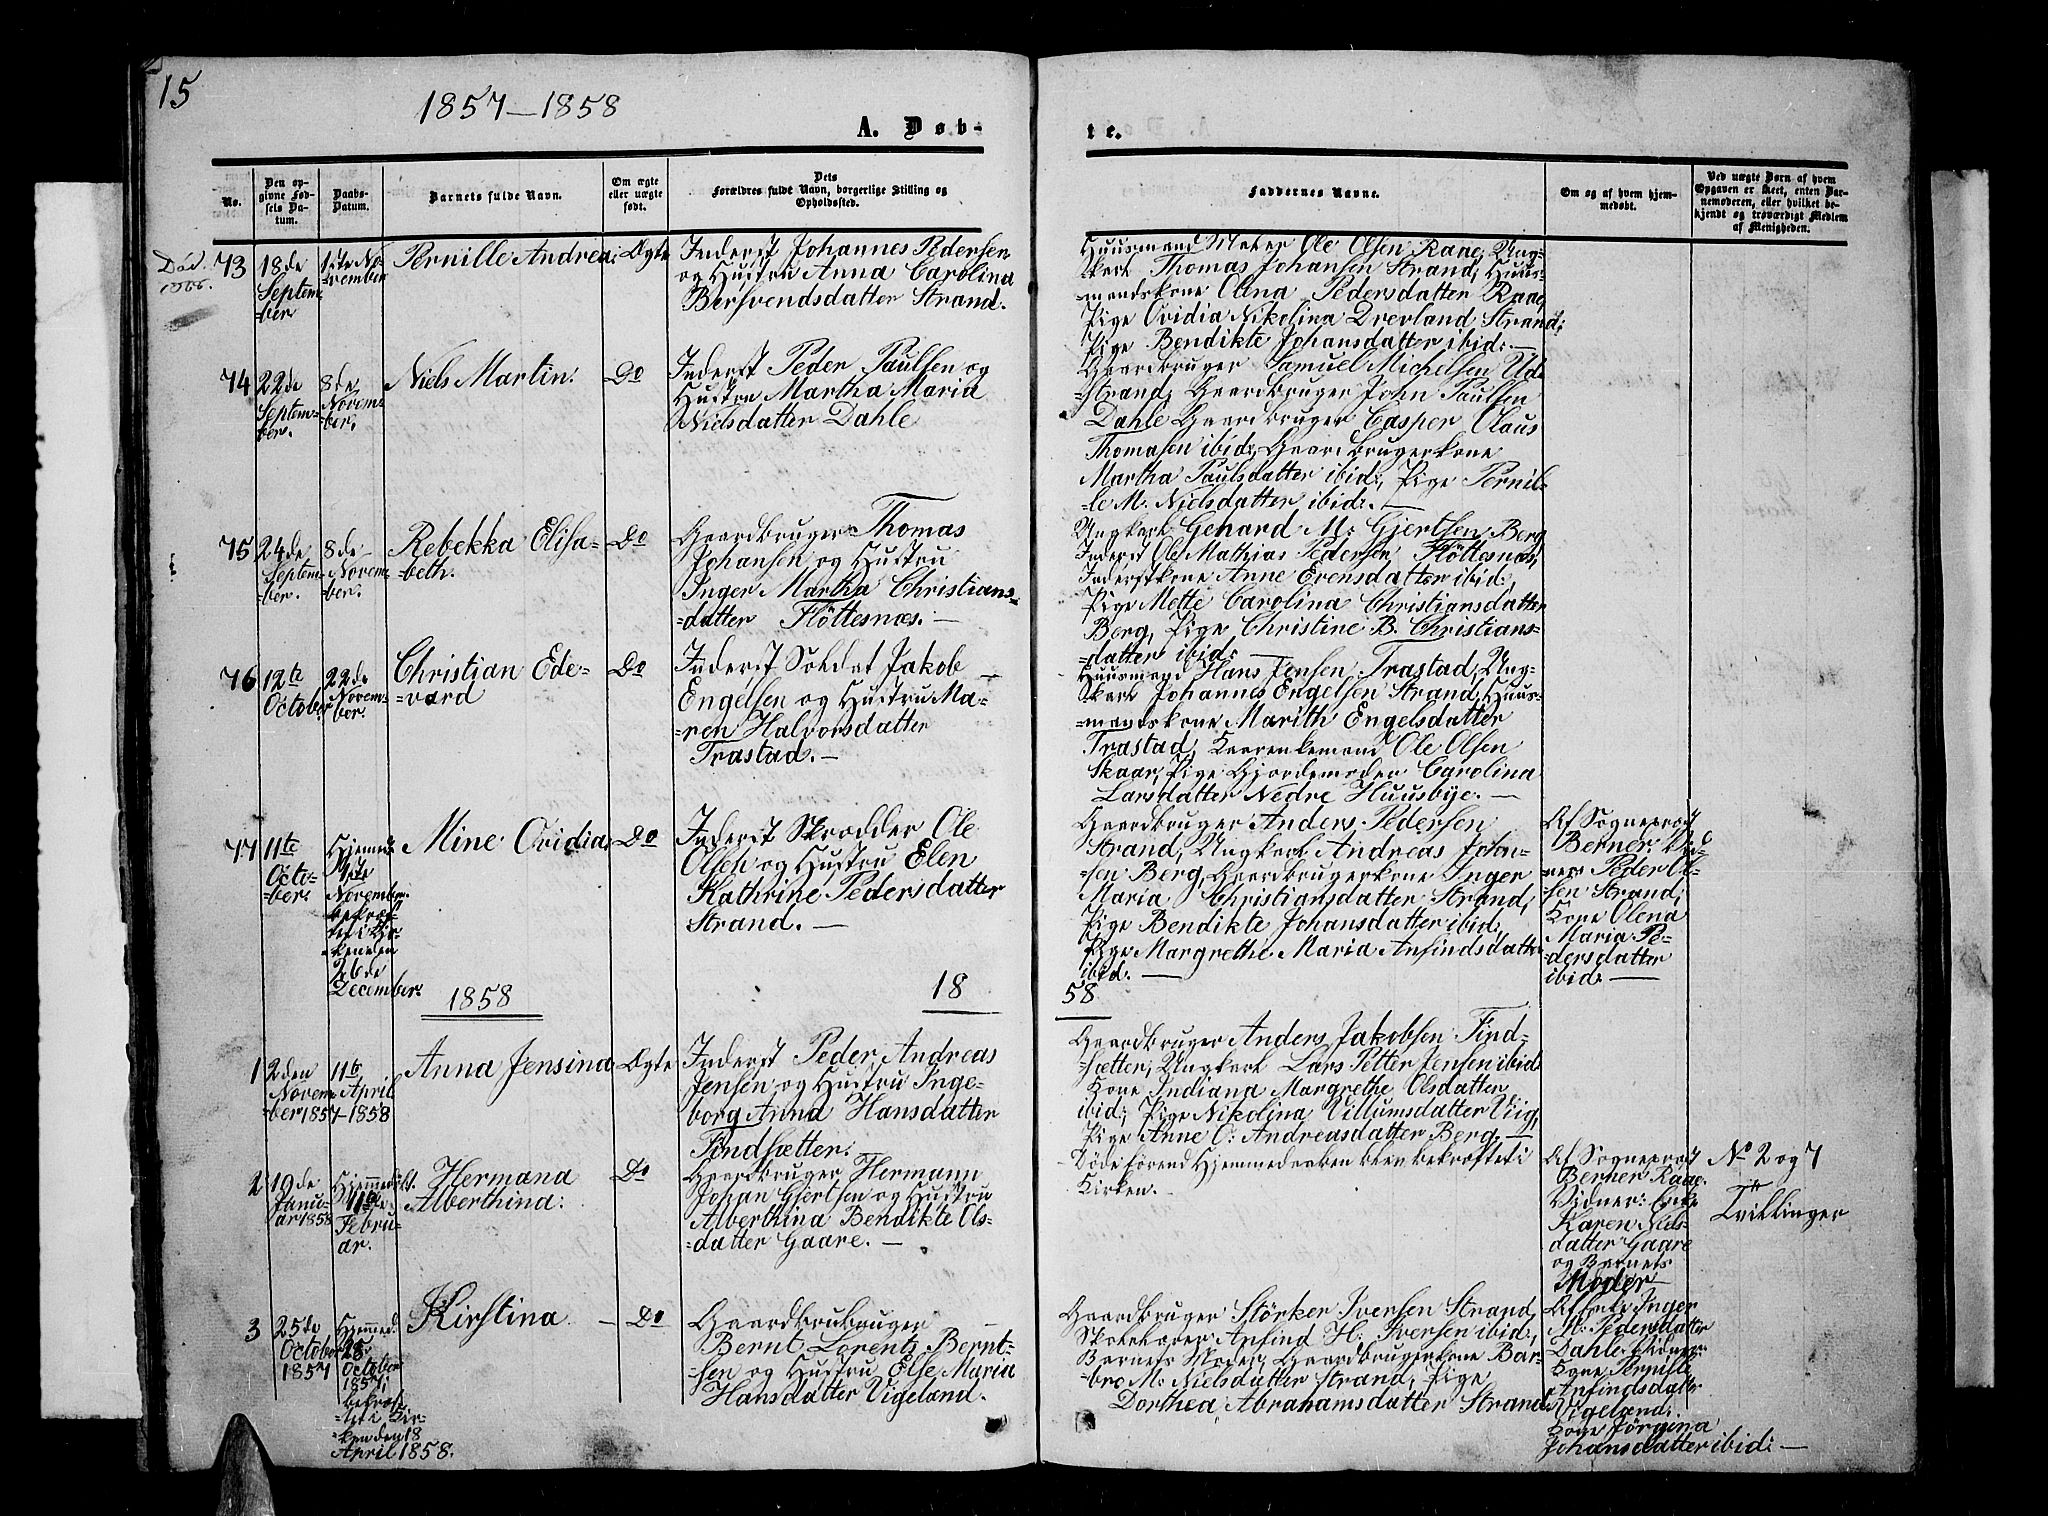 15
1857–1858
A. Døb-
te.
No.
Den op-
givne Fød-
sels Da-
tum.
Daabs-
Datum.
Barnets fulde Navn.
Om ægte
eller uægte
født.
Dets
Forældres fulde Navn, borgerlige Stilling og
Opholdssted.
Faddernes Navne.
Om og af hvem hjem-
medøbt.
Ved uægte Børn af hvem
Opgaven er skeet, enten Bar-
nemoderen, eller hvilket be-
kjendt og troværdigt Medlem
af Menigheden.
Död.
73
18de
Septem
-ber
1ste No-
-vember
Pernille Andrea:
Ægte
Inderst Johannes Pedersen
og Hustru Anna Carolina
Bersvendsdatter Strand.
Huusmand Ole Olsen Raae, Ung-
-karl Thomas Johansen Strand, Huus-
-mandskone Olina Pedersdatter Raae,
Pige Ovidia Nikolina Drevland Strand;
Pige Bendikte Johansdatter ibid: —
74
22de
Septem-
-ber.
8de
Novem-
-ber.
Niels Martin.
Do
Inderst Peder Paulsen og
Hustru Martha Maria
Nielsdatter Dahle
Gaardbruger Samuel Michelsen Ud-
-strand, Gaardbruger John Paulsen
Dahle Gaardbruger Casper Claus
Thomasen ibid:, Gaardbrugerkone
Martha Paulsdatter ibid:, Pige Pernil-
-le M. Nielsdatter ibid:. —
75
24de
Septem-
-ber.
8de
Novem-
-ber.
Rebekka Elisa-
-beth.
Do
Gaardbruger Thomas
Johansen og Hustru
Inger Martha Christians-
-datter Flöttesnæs. —
Ungkarl Gerhard M: Gjertsen Berg
Inderst Ole Mathias Pedersen Flöttesnæs,
Inderstkone Anne Evensdatter ibid:,
Pige Mette Carolina Christiansdatter
Berg, Pige Christine B. Christians-
-datter ibid: —
76
12te
October
22de
Novem-
-ber.
Christian Ede-
-vard
Do
Inderst Soldat Jakob
Engelsen og Hustru Ma-
-ren Halvorsdatter
Trastad. —
Huusmand Hans Jensen Trastad, Ung-
-karl Johannes Engelsen Strand, Huus-
-mandskone Marith Engelsdatter
Trastad, Ole Olsen
Skaar, Pige Gjordemoder Carolina
Larsdatter Nedre Huusbye. —
77
11te
Octo-
-ber.
Hjemmed.
1ste
November.
bekræf-
-tet i Kir-
-ken den
26de
December.
Mine Ovidia.
Do
Inderst Skrædder Ole
Olsen og Hustru Elen
Kathrine Pedersdatter
Strand. —
Gaardbruger Anders Pedersen
Strand, Ungkarl Andreas John-
-sen Berg, Gaardbrugerkone Inger
Maria Christiansdatter Strand,
Pige Bendikte Johansdatter ibid:,
Pige Margrethe Maria Anfindsdatter
ibid. —
Af Sogneprest
Berner: Vid-
-ner: Peder Ol-
-sen Strand,
Kone Olena
Maria Pe-
-dersdatter
ibid: —
1858
18
58
1
2den
Novem-
-ber 1857
11te
April
1858
Anna Jensina
Ægte
Inderst Peder Andreas
Jensen og Hustru Inge-
borg Anna Hansdatter
Findsætter.
Gaardbruger Anders Jakobsen Find-
-sætter, Ungkarl Lars Petter Jensen ibid
Kone Indiana Margrethe Olsdatter
ibid:, Pige Nikolina Villumsdatter Viig,
Pige Anne O: Andreasdatter Berg. —
2
19de
Janu-
ar 1858
Hjemmedöbt.
11te
Febru-
ar.
Hermana
Alberthina:
Do
Gaardbruger Hermann
Johan Gjertsen og Hustru
Alberthina Bendikte Ols-
-datter Gaare. —
Döde förend Hjemmedaaben blev bekræftet i
Kirken. —
Af Sogneprest
Berner Raae.
Vidner: Enke
Karen Niels-
datter Gaare
og Barnets
Moder —
No 2 og 7
Tvillinger
3
25de
October
1857
Hjemmed.
28
October
1857;
bekræf-
-tet i Kir-
-ken den 18
April 1858.
Kirstina
Do
Gaardbrubruger
Bernt Lorents Bernt-
-sen og Hustru Else Maria
Hansdatter Vigeland.
Gaardbruger Störker Iversen Strand,
Skoleholder Anfind H. Iversen ibid:,
Barnets Moder, Gaardbrugerkone Bar-
bro M: Nielsdatter Strand, Pige
Dorthea Abrahamsdatter Strand
Af Enke Inger
M: Pedersdatter
Dahle. Vidner:
Kone Pernille
Anfindsdatter
Vigeland.
Kone Jörgina
Johansdatter ibid: —